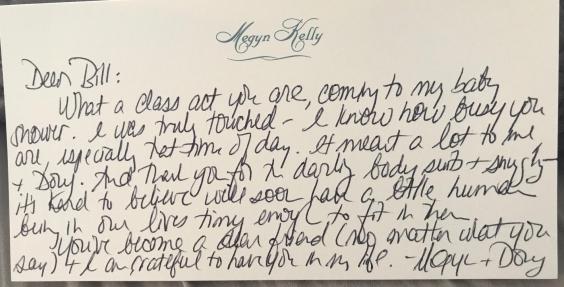 Megyn Kelly
Dear Bill:
What a class act you are, coming to my baby
shower. I was truly touched - I know how busy you
are, especially that time of day. It meant a lot to me
+ Doug. And thank you for the darling body suit + snuggly-
it's hard to believe we'll soon have a little human
being in our lives tiny enough to fit in them
You've become a dear friend (no matter what you
say) + I am grateful to have you in my life. - Megyn + Doug